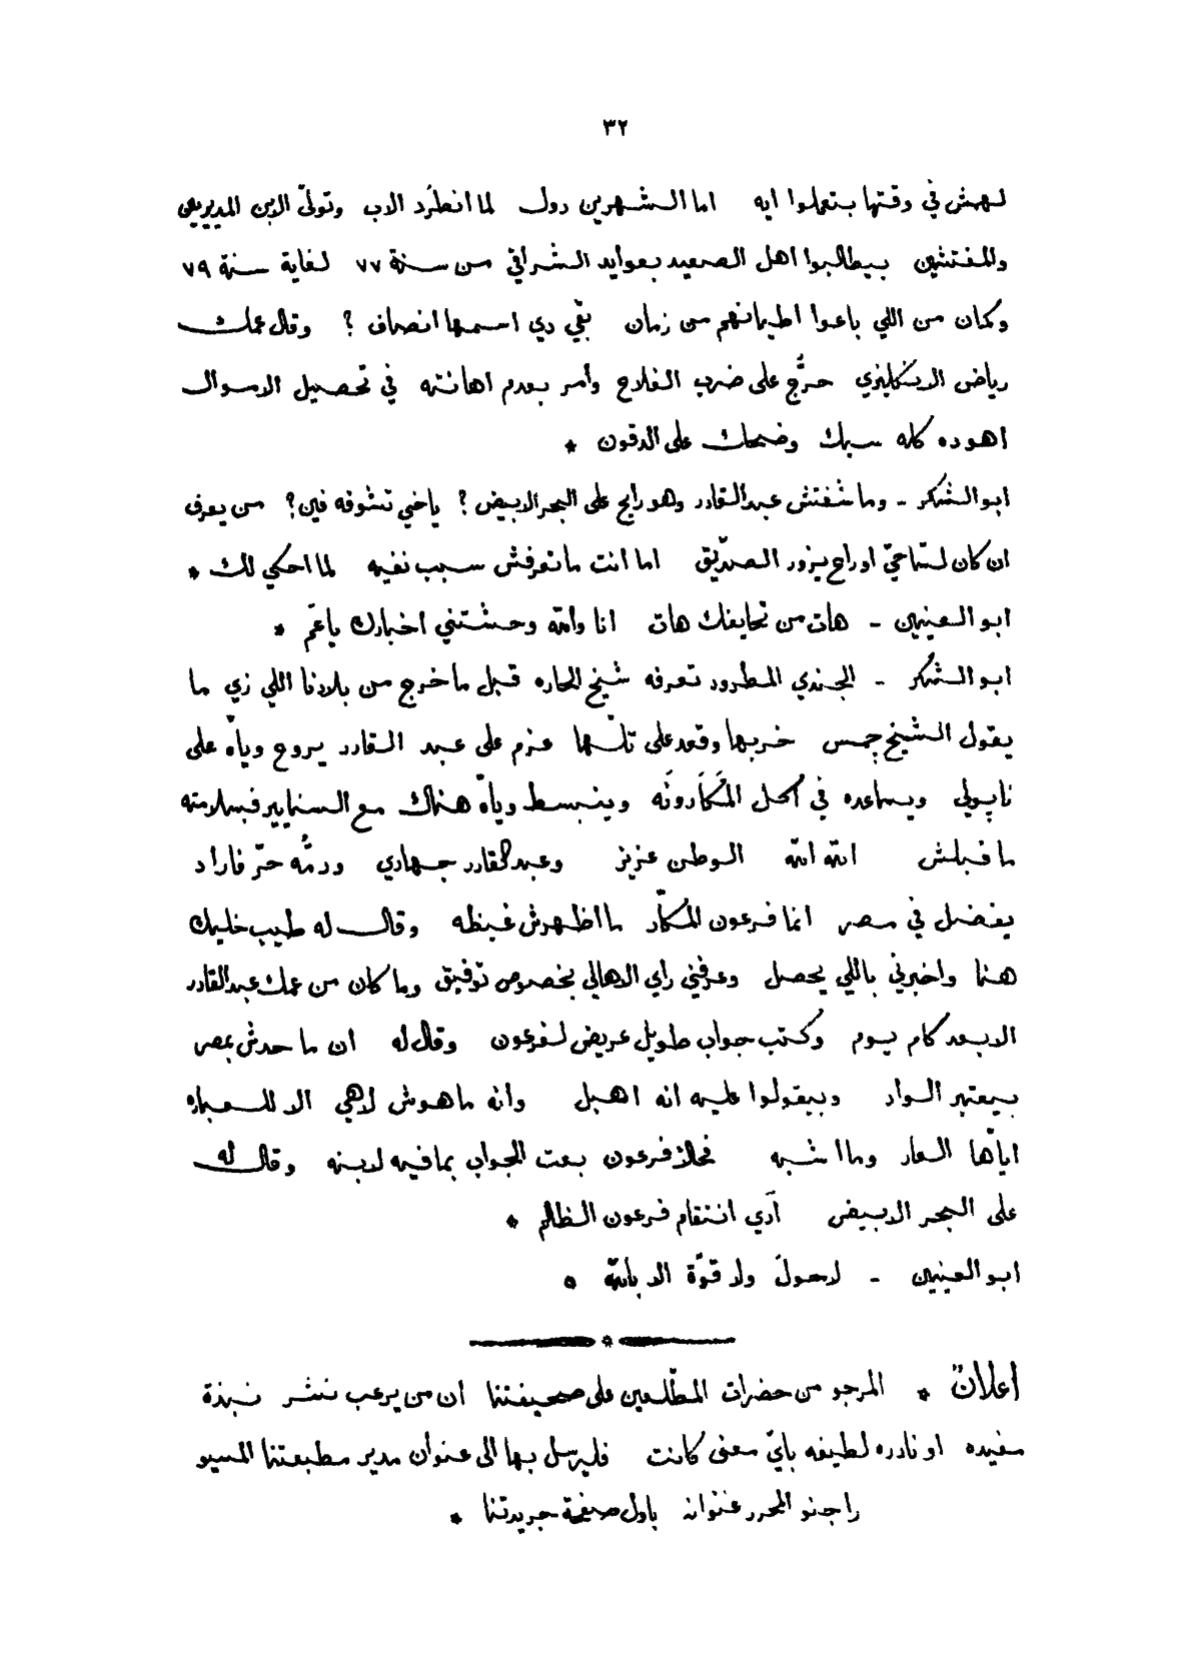 ٣٢
لهمش في وقتها بتعملوا ايه اما الشهرين دول لما انطرد الاب وتولّى الابن المديرين
والمفتشين بيطالبوا اهل الصعيد بعوايد الشراقي من سنة ٧٧ لغاية سنة ٧٩
وكمان من اللي باعوا اطيانهم من زمان بقي دي اسمها انصاف ؟ وقال عمك
رياض الانكليزي حرّج على ضرب الفلاح وأمر بعدم اهانته في تحصيل الاموال
اهوده كله سبك وضحك على الدقون *
ابو الشكر - وما شفتش عبد القادر وهو رايح على البحر الابيض ؟ ياخي تشوفه فين ؟ من يعرف
ان كان لسّاحيّ او راح يزور الصدّيق اما انت ماتعرفش سبب نفيه لما احكي لك *
ابو العينين - هات من تحايفك هات انا والله وحشتني اخبارك ياعمّ *
ابو الشكر - الجندي المطرود تعرفه شيخ الحاره قبل ماخرج من بلادنا اللي زي ما
يقول الشيخ جمس خربها وقعد على تلّها عزم على عبد القادر يروح وياّه على
ناپولي ويساعده في اكل المَكَارونَه وينبسط وياّه هناك مع السنايير فبسلامته
ماقبلش الله الله الوطن عزيز وعبد القادر جهادي ودمُّه حرّ فاراد
يفضل في مصر انما فرعون المكّار مااظهرش غيظه وقال له طيب خليك
هنا واخبرني باللي يحصل وعرفني راي الاهالي بخصوص توفيق وماكان من عمك عبد القادر
الابعد كام يوم وكتب جواب طويل عريض لفرعون وقال له ان ماحدش بمصر
بيعتبر الواد وبيقولوا عليه انه اهبل وانه ماهوش لاهي الا للعباره
اياّها العار ومااشبه فحالا فرعون بعت الجواب بمافيه لابنه وقال له
على البحر الابيض آدي انتقام فرعون الظالم *
ابو العينين - لاحول ولا قوّة الا بالله *
اعلان * المرجو من حضرات المطّلعين على صحيفتنا ان من يرغب نشر نبذة
مفيده او نادره لطيفه بايّ معنى كانت فليرسل بها الى عنوان مدير مطبعتنا المسيو
راجنو المحرر عنوانه باول صفحة جريدتنا *